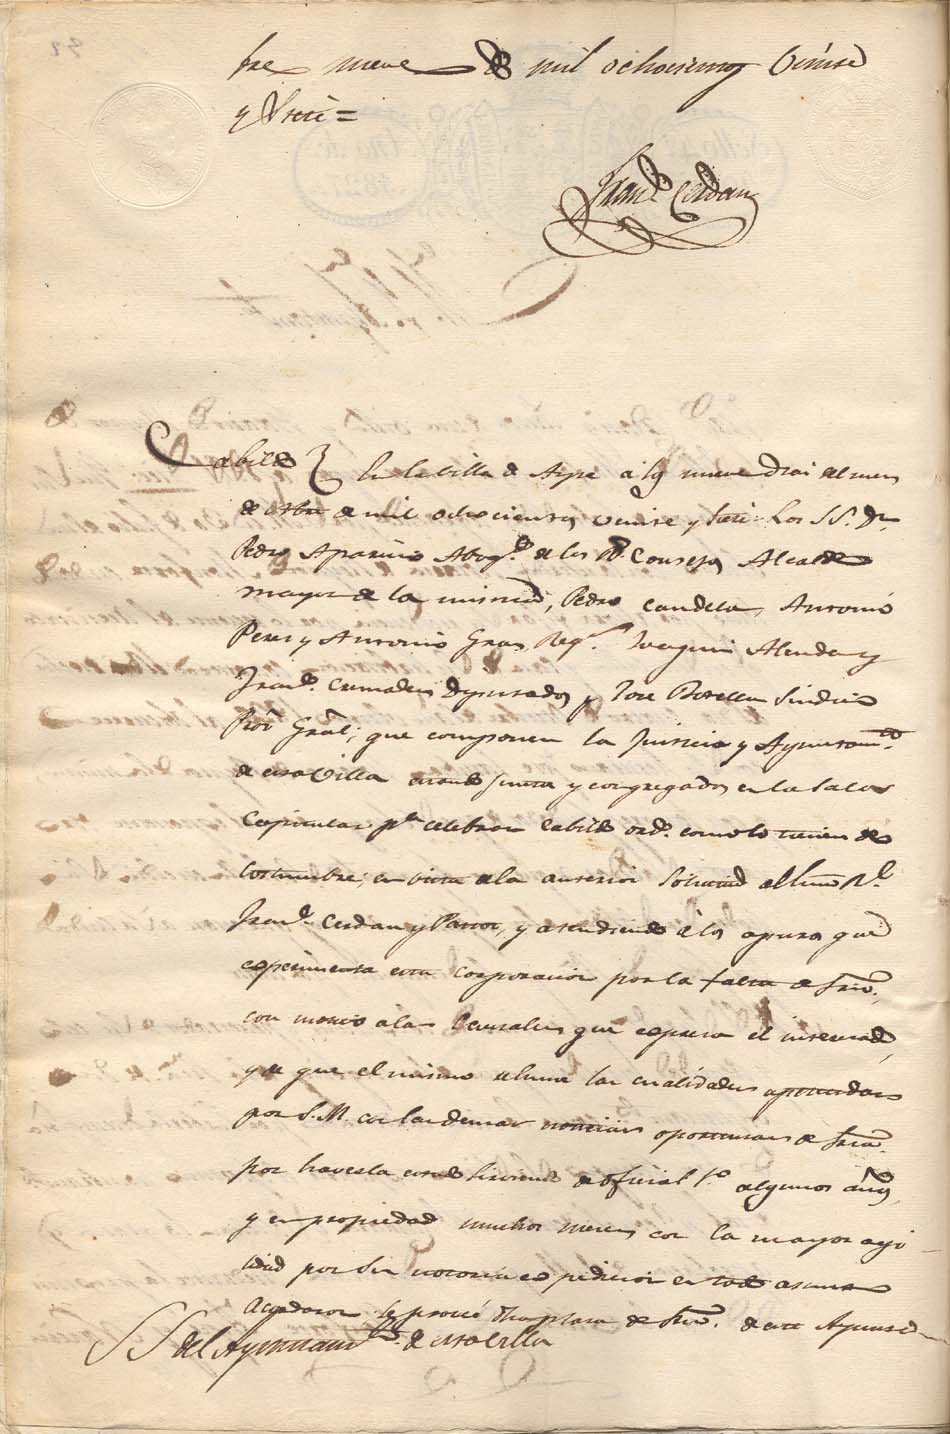 bre nueve de mil ochocientos Veinte
y Siete =
Fran.co Cerdan
Cabildo En la villa de Aspe a los nueve dias del mes
de de mil ochocientos veinte y siete: Los SS. Dn.
Pedro Aparicio Abog.do de los R.s Consejos Alcalde
mayor de la misma, Pedro Candela, Antonio
Peres y Antonio Gras, Reg.s Joaquin Alenda y
Fran.co Cremades Diputados y Jose Botella Sindico
Pror Gral; que componen la Justicia y Ayuntam.to
de esta Villa estando junta y congregados en la Sala
Capitular p.a celebrar Cabildo ord.o como lo tienen de
costumbre; en vista de la anterior Solicitud
Fran.co Cerdan y Pastor, y atendiendo à los apuros que
experimenta esta corporacion por la falta de Srio.
con motivo a las que espresa el interesado,
y a que el mismo reune las cualidades apetecidas
por S.M. con las demas noticias oportunas de Sria.
por haverla estado sirviendo de oficial 1.o algunos años,
y en propiedad muchos meses con la mayor agi-
lidad por su notoria espedicion en todo asunto
Acordaron Se proveé dha plaza de Srio. de este Ayunta
SS del Ayuntam.to de esta Villa